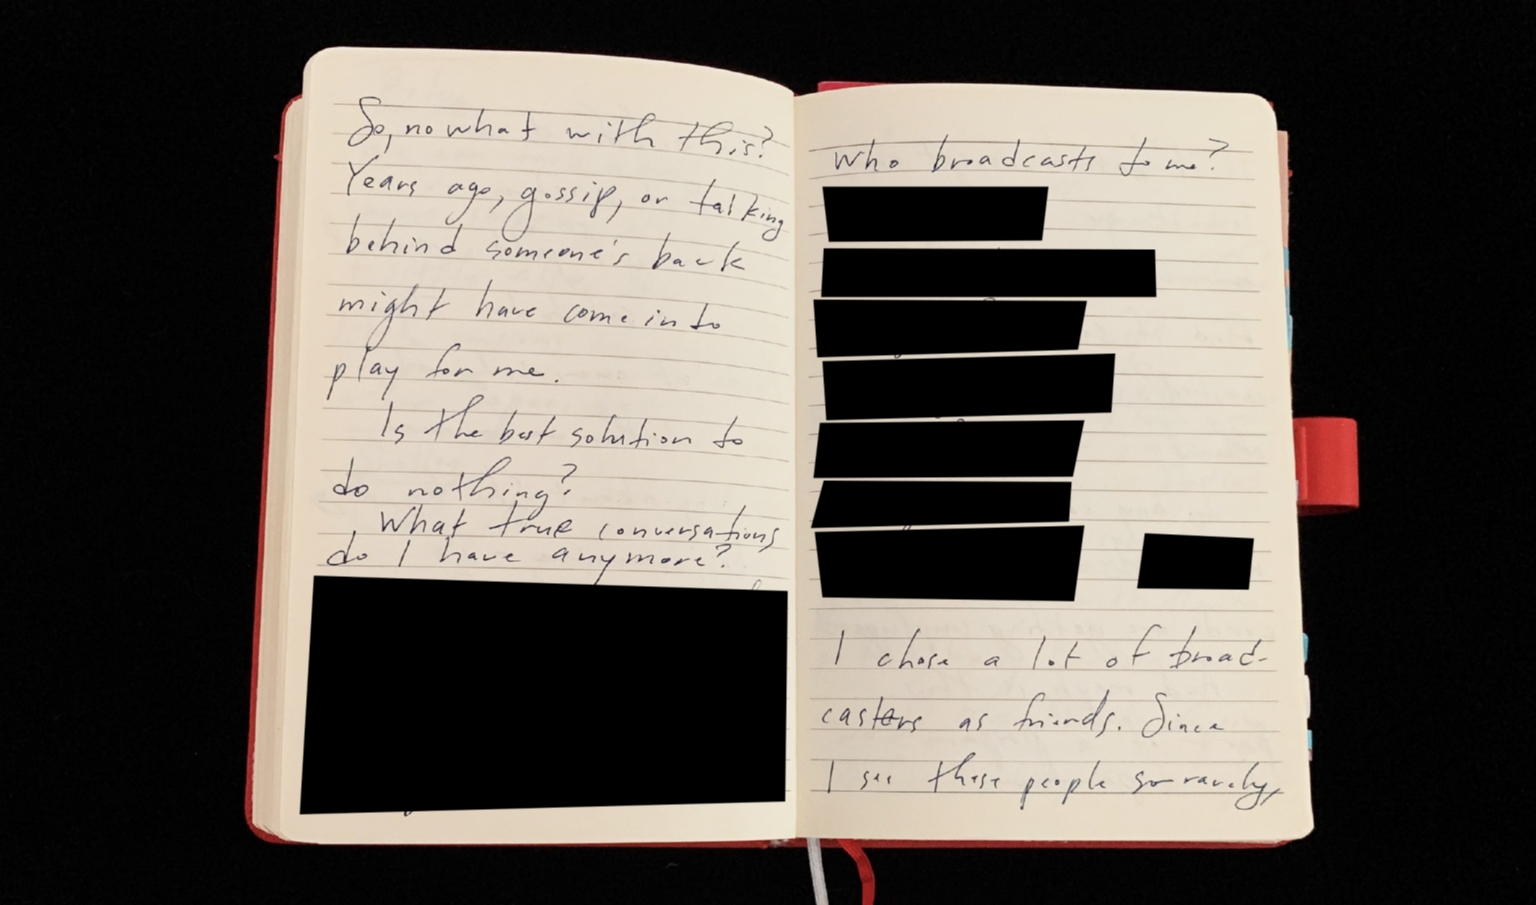 So, now what with this?
Years ago, gossip, or talking
behind someone's back
might have come into
play for me.
Is the best solution to
do nothing?
What true conversations
do I have anymore?
Who broadcasts to me?
I chose a lot of broad-
casters as friends. Since
I see these people so rarely,